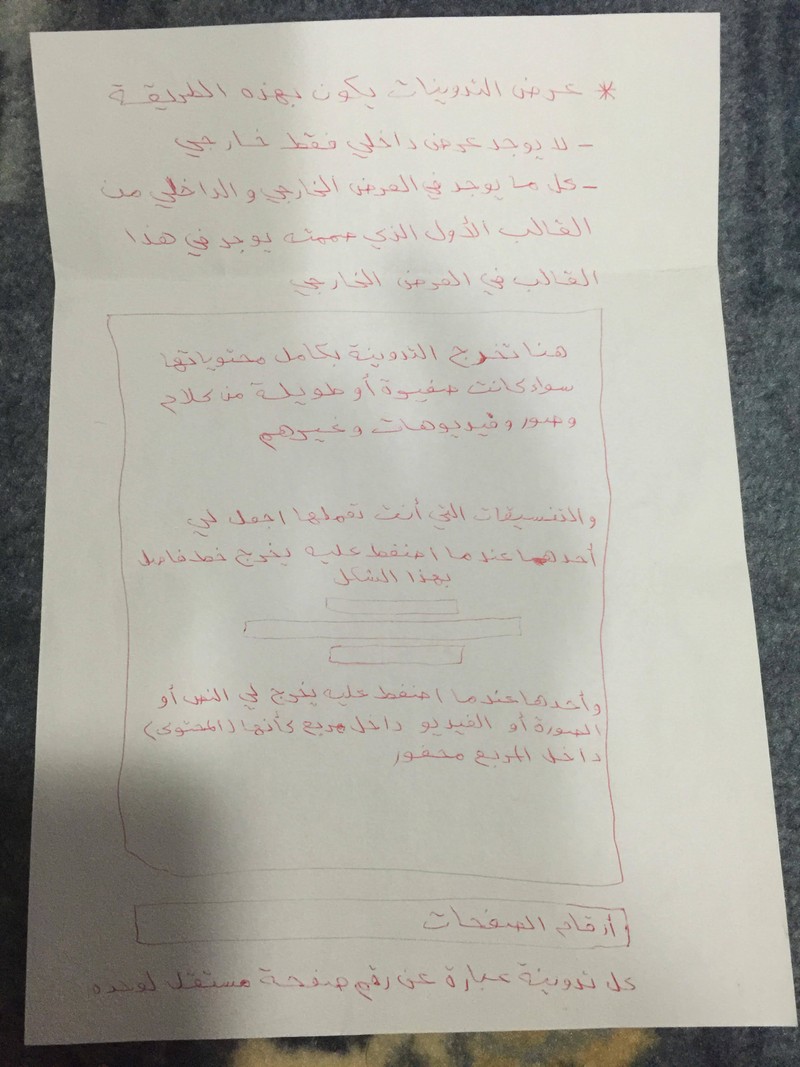 * عرض التدوينات يكون بهذه الطريقة
- لا يوجد عرض داخلي فقط خارجي
- كل ما يوجد في العرض الخارجي و الداخلي من
القالب الأول الذي صممته يوجد في هذا
القالب في العرض الخارجي
هنا تخرج التدوينة بكامل محتوياتها
سواء كانت صغيرة أو طويلة من كلام
وصور وفيديوهات وغيرهم
والتنسيقات التي أنت تعملها اجعل لي
أحدها عندما اضغط عليه يخرج خط فاصل
بهذا الشكل
وأحدها عندما اضغط عليه يخرج لي النص أو
الصورة أو الفيديو داخل مربع كأنها (المحتوى)
داخل المربع محفور
أرقام الصفحات
كل تدوينة عبارة عن رقم صفحة مستقل لوحده